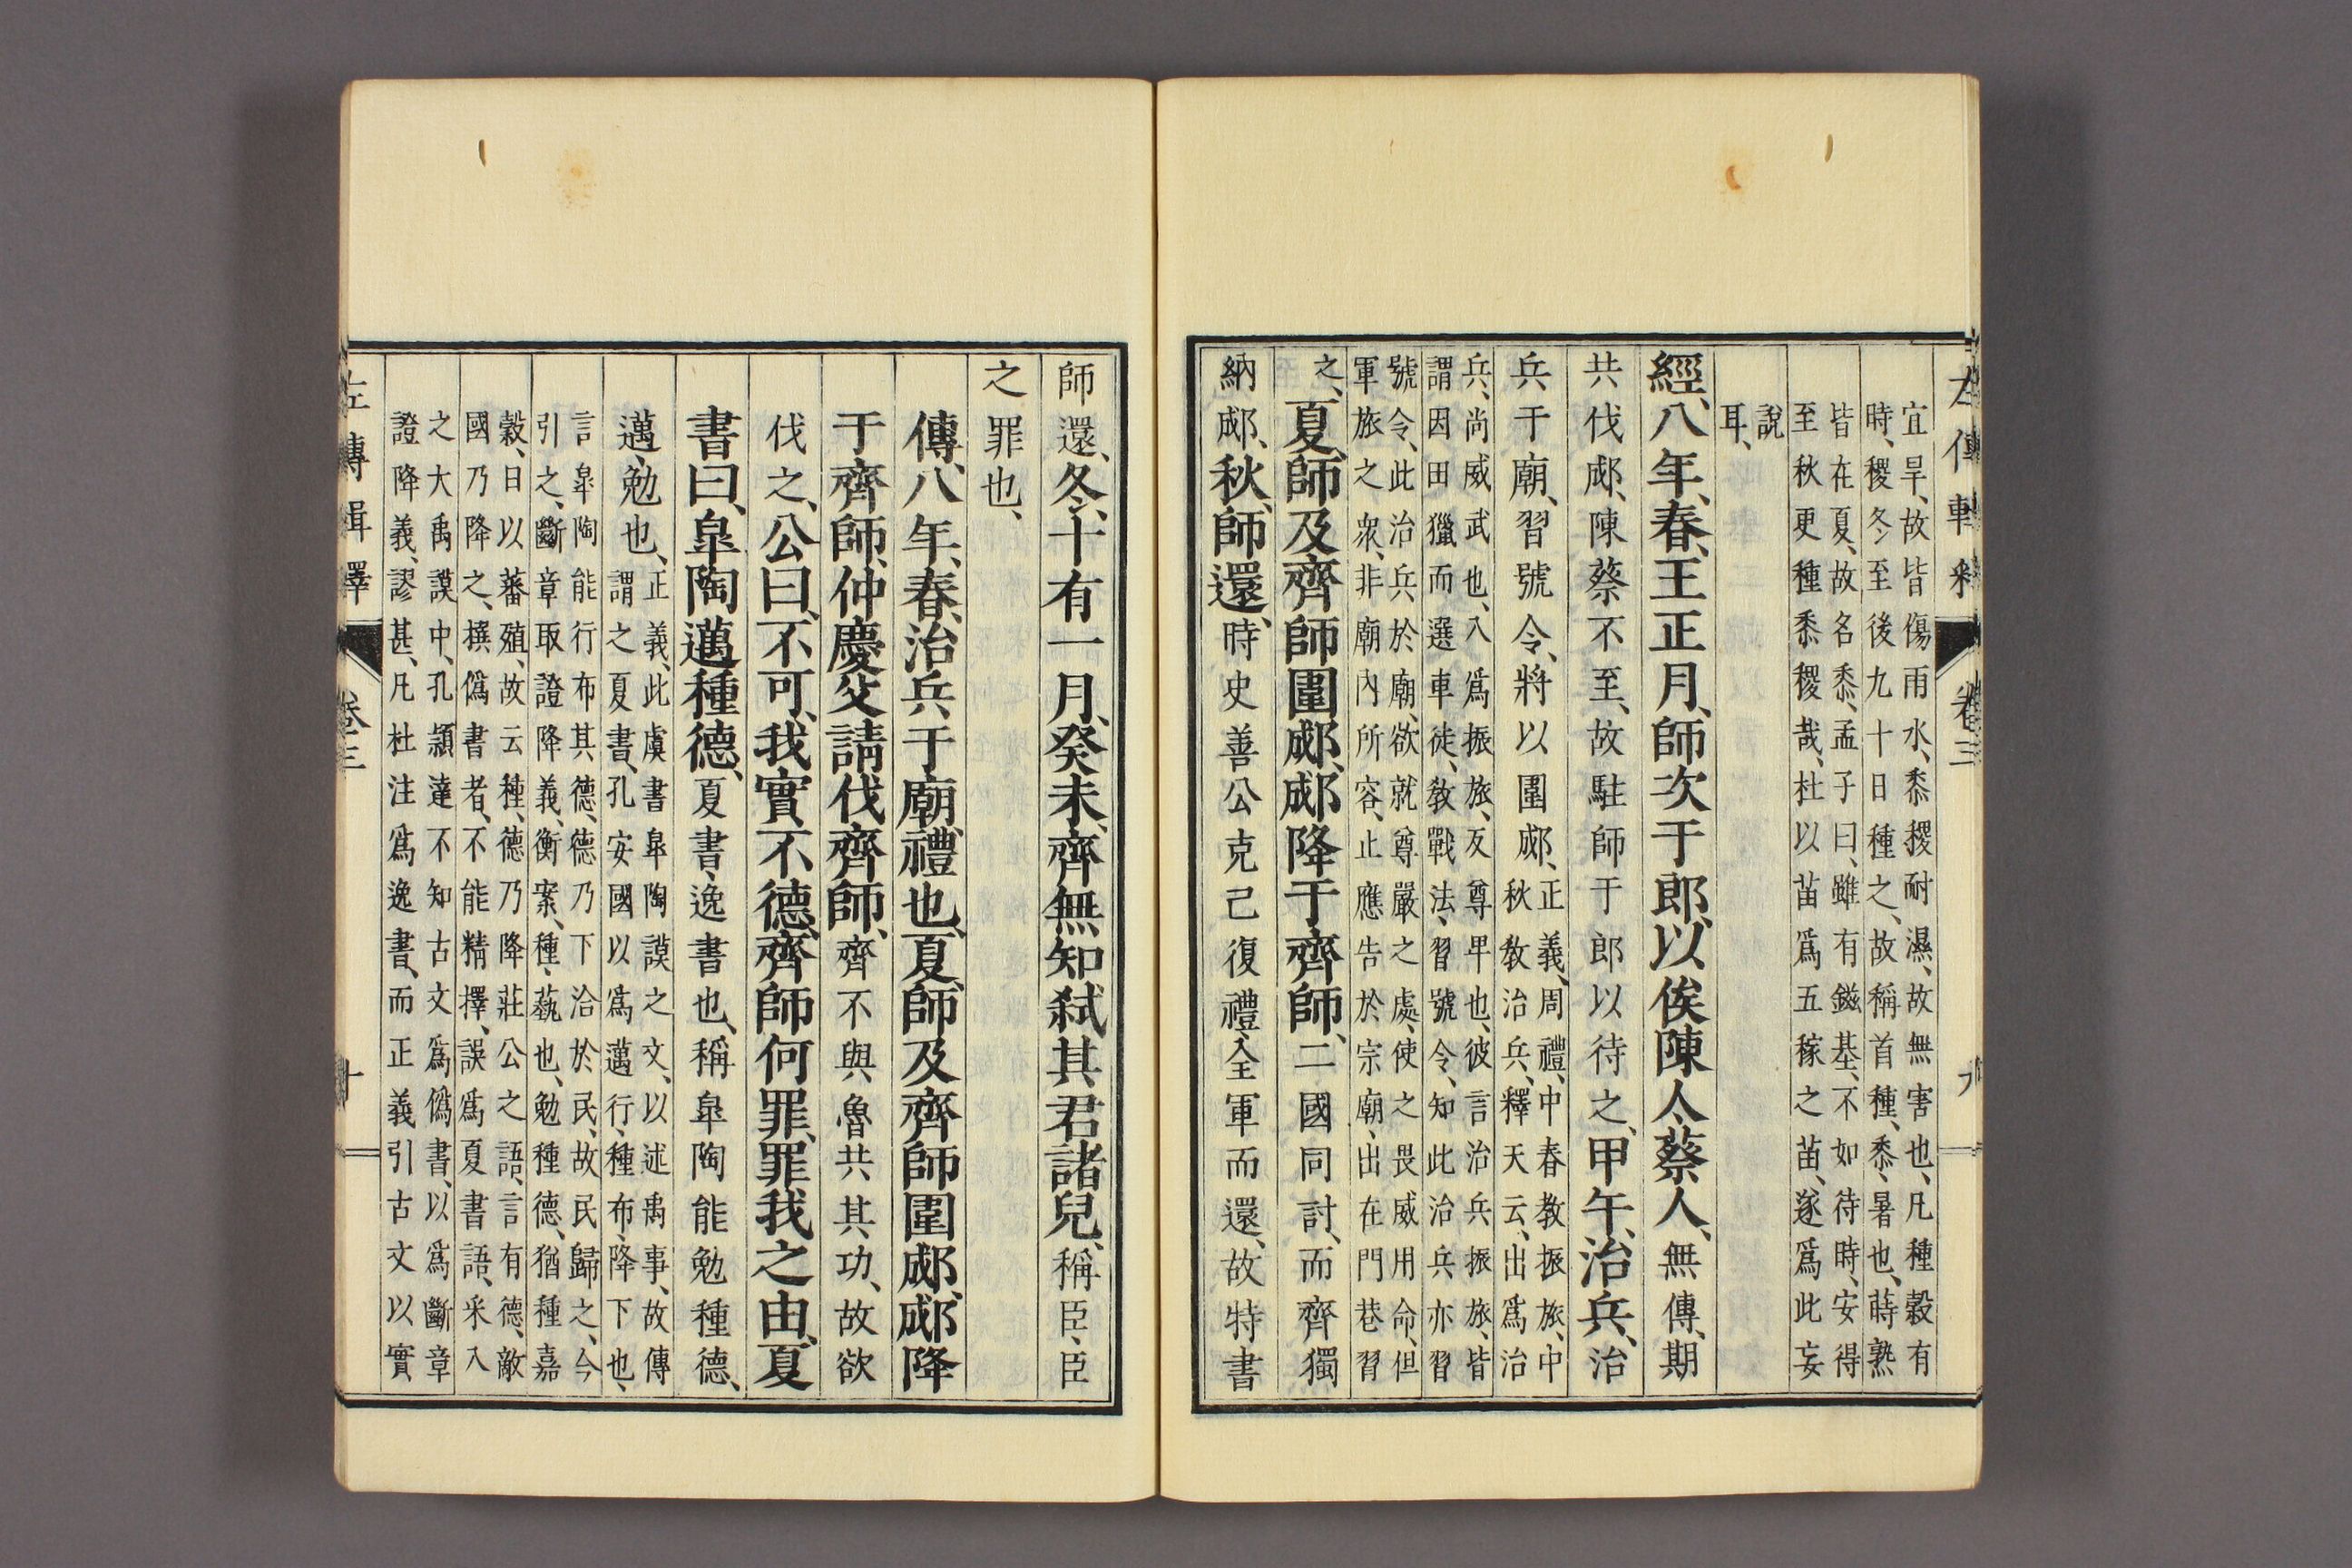 左傳輯釋 卷三 九
宜旱、故皆傷雨水、黍稷耐濕、故無害也、凡種穀有
時、稷冬至後九十日種之、故稱首種、黍、暑也、蒔熟
皆在夏、故名黍、孟子曰、雖有鎡基、不如待時、安得
至秋更種黍稷哉、杜以苗爲五稼之苗、遂爲此妄
說
耳、
經、八年、春、王正月、師次于郎、以俟陳人、蔡人、無傳、期
共伐郕、陳蔡不至、故駐師于郎以待之、甲午、治兵、治
兵于廟、習號令、將以圍郕、正義、周禮、中春教振旅、中
秋教治兵、釋天云、出爲治
兵、尚威武也、入爲振旅、反尊卑也、彼言治兵振旅、皆
謂因田獵而選車徒、教戰法、習號令、知此治兵亦習
號令、此治兵於廟、欲就尊嚴之處、使之畏威用命、但
軍旅之衆、非廟內所容、止應告於宗廟、出在門巷習
之、夏、師及齊師圍郕、郕降于齊師、二國同討、而齊獨
納郕、秋、師還、時史善公克己復禮、全軍而還、故特書
師還、冬、十有一月、癸未、齊無知弒其君諸兒、稱臣、臣
之罪也、
傳、八年、春、治兵于廟、禮也、夏、師及齊師圍郕、郕降
于齊師、仲慶父請伐齊師、齊不與魯共其功、故欲
伐之、公曰、不可、我實不德、齊師何罪、罪我之由、夏
書曰、皐陶邁種德、夏書、逸書也、稱皐陶能勉種德、
邁、勉也、正義、此虞書皐陶謨之文、以述禹事、故傳
謂之夏書、孔安國以爲邁行、種布、降下也、
言皐陶能行布其德、德乃下洽於民、故民歸之、今
引之、斷章取證降義、衡案、種、蓺也、勉種德、猶種嘉
穀、日以蕃殖、故云種、德乃降、莊公之語、言有德、敵
國乃降之、撰僞書者、不能精擇、誤爲夏書語、采入
之大禹謨中、孔穎達不知古文爲僞書、以爲斷章
證降義、謬甚、凡杜注爲逸書、而正義引古文以實
左傳輯釋 卷三 十